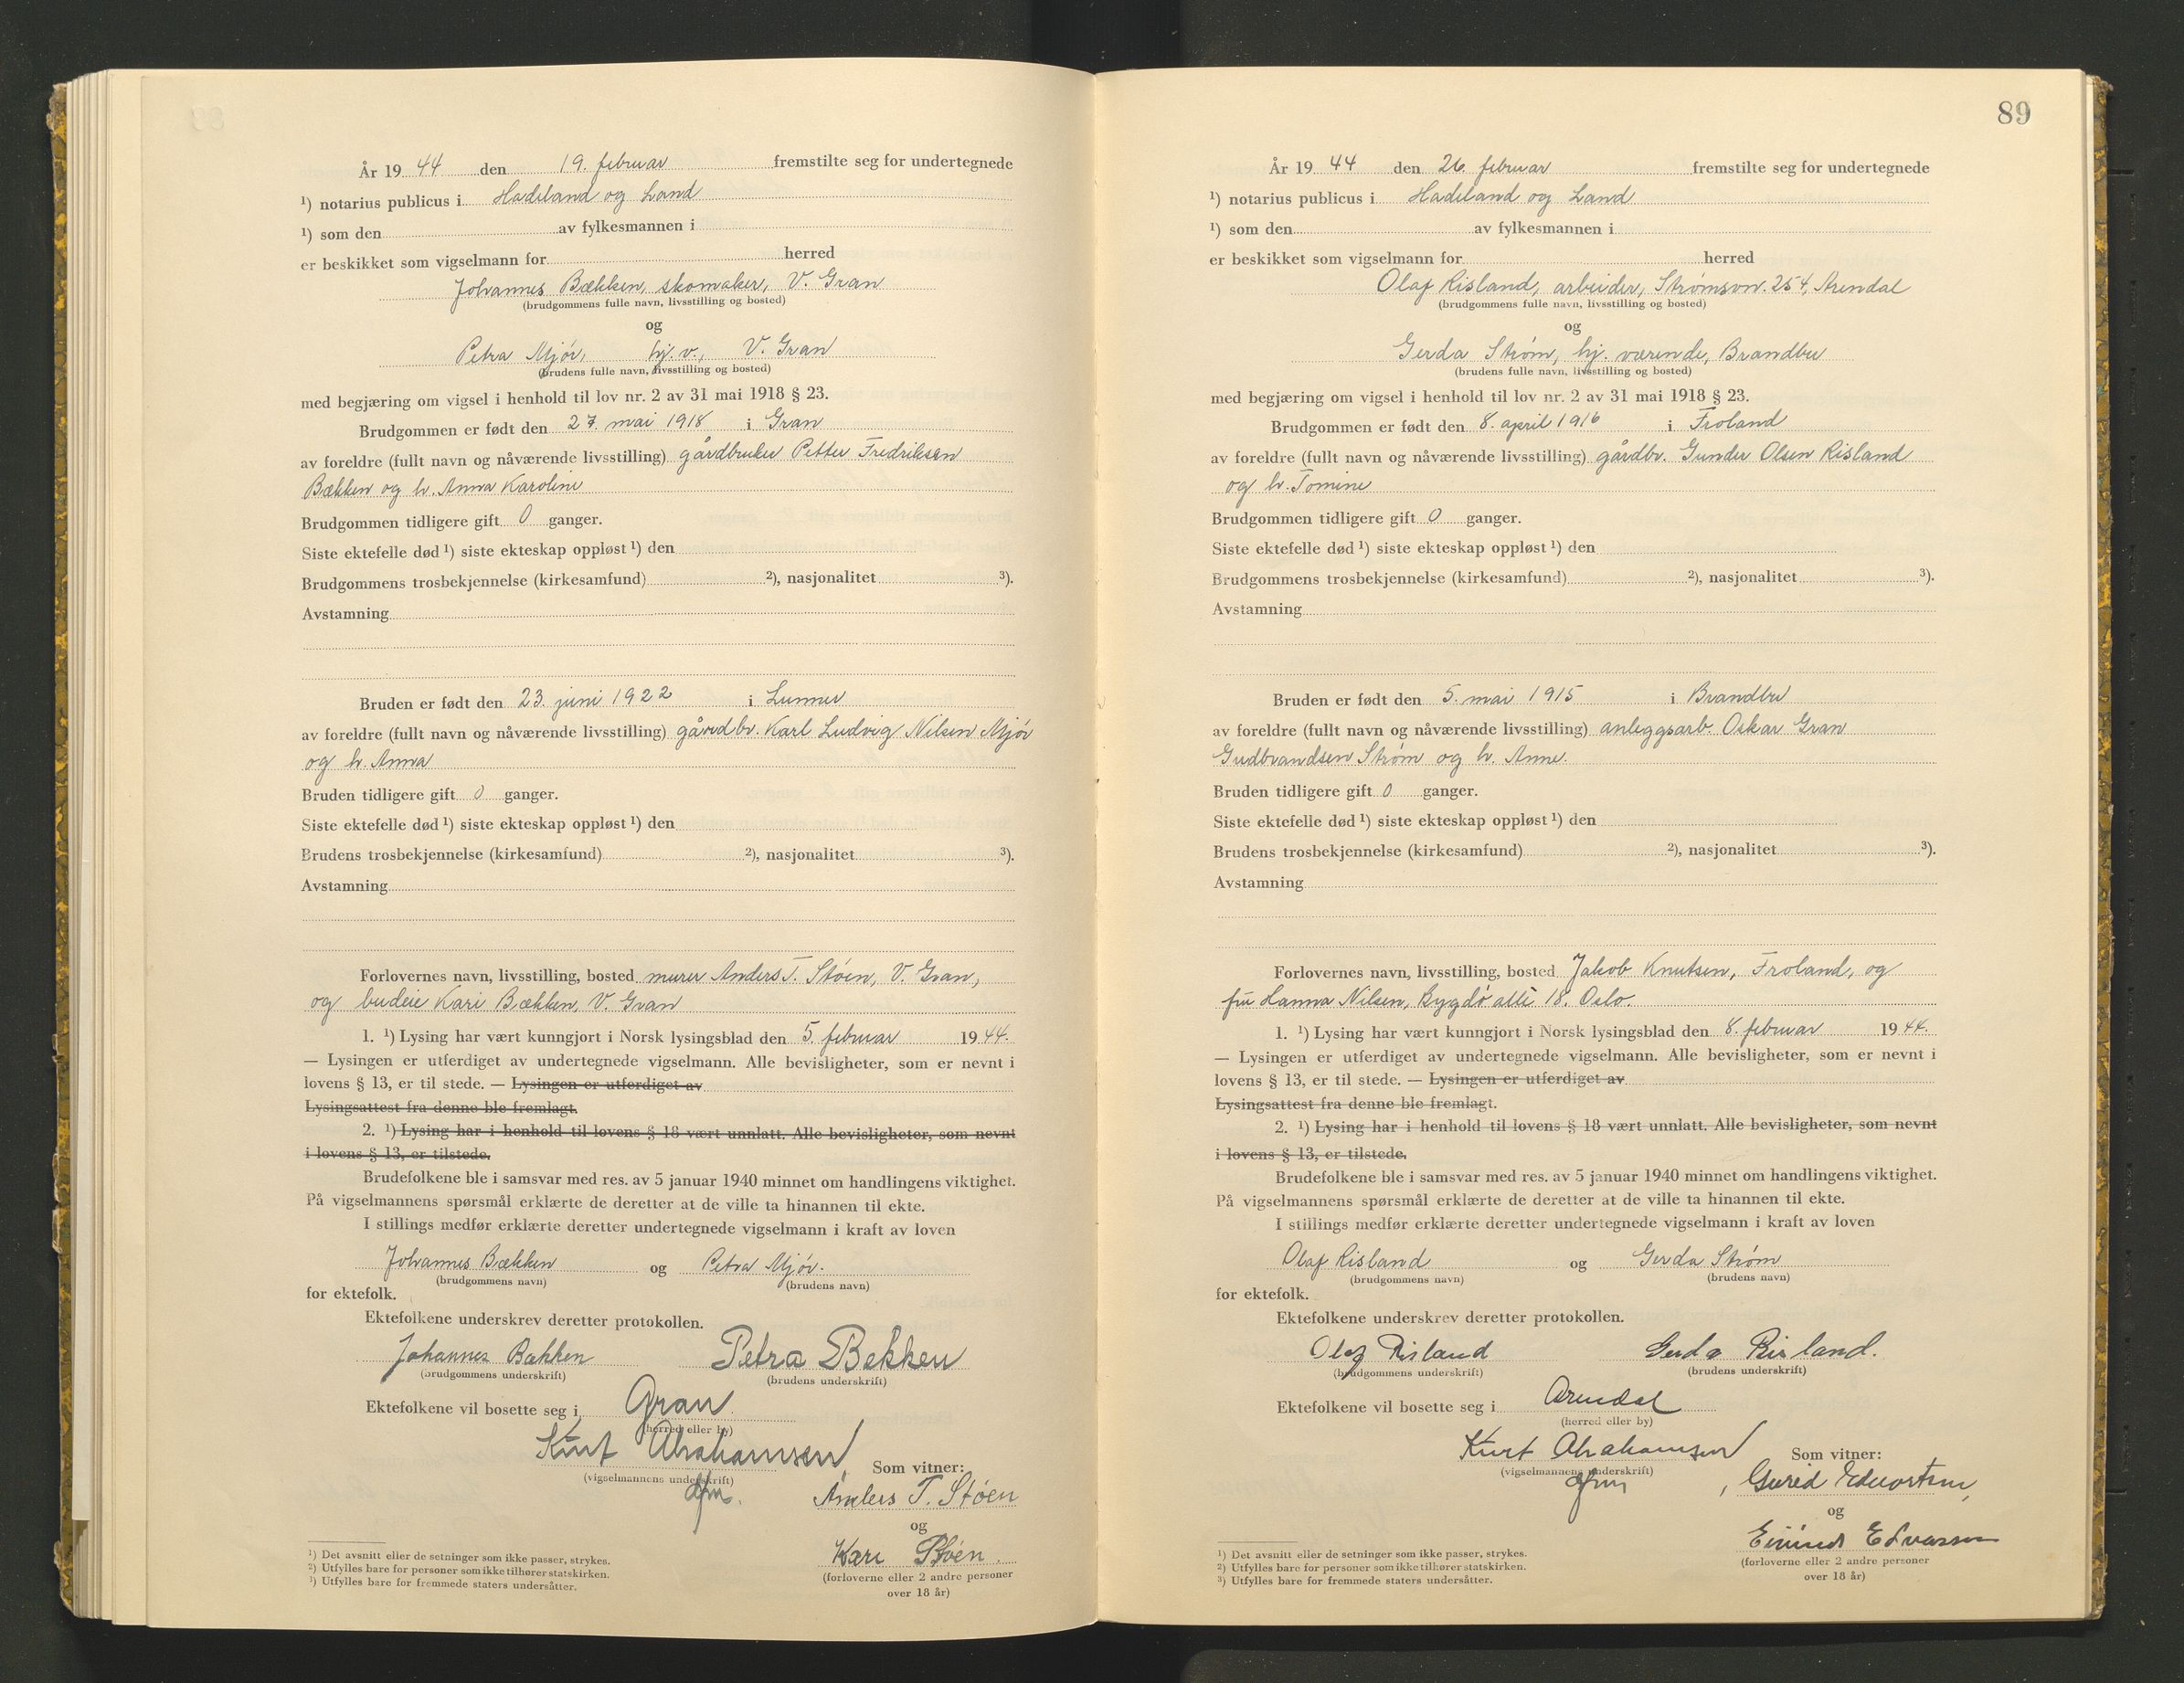 År 19 44 den 19. februar fremstilte seg for undertegnede
¹) notarius publicus i Hadeland og Land
¹) som den av fylkesmannen i
er beskikket som vigselmann for herred
Johannes Bækken, skomaker, V. Gran
(brudgommens fulle navn, livsstilling og bosted)
og
Petra Mjør, hj. v., V. Gran
(brudens fulle navn, livsstilling og bosted)
med begjæring om vigsel i henhold til lov nr. 2 av 31 mai 1918 § 23.
Brudgommen er født den 27. mai 1918 i Gran
av foreldre (fullt navn og nåværende livsstilling) gårdbruker Petter Fredriksen
Bækken og h. Anna Karoline
Brudgommen tidligere gift 0 ganger.
Siste ektefelle død ¹) siste ekteskap oppløst ¹) den
Brudgommens trosbekjennelse (kirkesamfund) ²), nasjonalitet ³).
Avstamning
Bruden er født den 23. juni 1922 i Lunner
av foreldre (fullt navn og nåværende livsstilling) gårdbr. Karl Ludvig Nilsen Mjør
og h. Anna
Bruden tidligere gift 0 ganger.
Siste ektefelle død ¹) siste ekteskap oppløst ¹) den
Brudens trosbekjennelse (kirkesamfund) ²), nasjonalitet ³).
Avstamning
Forlovernes navn, livsstilling, bosted murer Anders T. Støen, V. Gran,
og budeie Kari Bækken, V. Gran
1. ¹) Lysing har vært kunngjort i Norsk lysingsblad den 5. februar 19 44.
— Lysingen er utferdiget av undertegnede vigselmann. Alle bevisligheter, som er nevnt i
lovens § 13, er til stede. — Lysingen er utferdiget av
Lysingsattest fra denne ble fremlagt.
2. ¹) Lysing har i henhold til lovens § 18 vært unnlatt. Alle bevisligheter, som nevnt
i lovens § 13, er tilstede.
Brudefolkene ble i samsvar med res. av 5 januar 1940 minnet om handlingens viktighet.
På vigselmannens spørsmål erklærte de deretter at de ville ta hinannen til ekte.
I stillings medfør erklærte deretter undertegnede vigselmann i kraft av loven
Johannes Bækken og Petra Mjør.
(brudgommens navn) (brudens navn)
for ektefolk.
Ektefolkene underskrev deretter protokollen.
Johannes Bækken Petra Bekken
(brudgommens underskrift) (brudens underskrift)
Ektefolkene vil bosette seg i Gran
(herred eller by)
Kurt Abrahamsen
(vigselmannens underskrift) Som vitner:
Anders T. Støen
og
Kari Støen
(forloverne eller 2 andre personer
over 18 år)
¹) Det avsnitt eller de setninger som ikke passer, strykes.
²) Utfylles bare for personer som ikke tilhører statskirken.
³) Utfylles bare for fremmede staters undersåtter.
89
År 19 44 den 26. februar fremstilte seg for undertegnede
¹) notarius publicus i Hadeland og Land
¹) som den av fylkesmannen i
er beskikket som vigselmann for herred
Olaf Risland, arbeider, Strømsvn. 254, Arendal
(brudgommens fulle navn, livsstilling og bosted)
og
Gerda Strøm, hj. værende, Brandbu
(brudens fulle navn, livsstilling og bosted)
med begjæring om vigsel i henhold til lov nr. 2 av 31 mai 1918 § 23.
Brudgommen er født den 8. april 1916 i Froland
av foreldre (fullt navn og nåværende livsstilling) gårdbr. Gunder Olsen Risland
og h. Tomine
Brudgommen tidligere gift 0 ganger.
Siste ektefelle død ¹) siste ekteskap oppløst ¹) den
Brudgommens trosbekjennelse (kirkesamfund) ²), nasjonalitet ³).
Avstamning
Bruden er født den 5. mai 1915 i Brandbu
av foreldre (fullt navn og nåværende livsstilling) anleggsarb. Oskar Gran
Gudbrandsen Strøm og h. Anne.
Bruden tidligere gift 0 ganger.
Siste ektefelle død ¹) siste ekteskap oppløst ¹) den
Brudens trosbekjennelse (kirkesamfund) ²), nasjonalitet ³).
Avstamning
Forlovernes navn, livsstilling, bosted Jakob Knutsen, Froland, og
fru Hanna Nilsen, Bygdø allé 18. Oslo.
1. ¹) Lysing har vært kunngjort i Norsk lysingsblad den 8. februar 19 44.
— Lysingen er utferdiget av undertegnede vigselmann. Alle bevisligheter, som er nevnt i
lovens § 13, er til stede. — Lysingen er utferdiget av
Lysingsattest fra denne ble fremlagt.
2. ¹) Lysing har i henhold til lovens § 18 vært unnlatt. Alle bevisligheter, som nevnt
i lovens § 13, er tilstede.
Brudefolkene ble i samsvar med res. av 5 januar 1940 minnet om handlingens viktighet.
På vigselmannens spørsmål erklærte de deretter at de ville ta hinannen til ekte.
I stillings medfør erklærte deretter undertegnede vigselmann i kraft av loven
Olaf Risland og Gerda Strøm
(brudgommens navn) (brudens navn)
for ektefolk.
Ektefolkene underskrev deretter protokollen.
Olaf Risland Gerda Risland.
(brudgommens underskrift) (brudens underskrift)
Ektefolkene vil bosette seg i Arendal
(herred eller by)
Kurt Abrahamsen
(vigselmannens underskrift) Som vitner:
og
(forloverne eller 2 andre personer
over 18 år)
¹) Det avsnitt eller de setninger som ikke passer, strykes.
²) Utfylles bare for personer som ikke tilhører statskirken.
³) Utfylles bare for fremmede staters undersåtter.